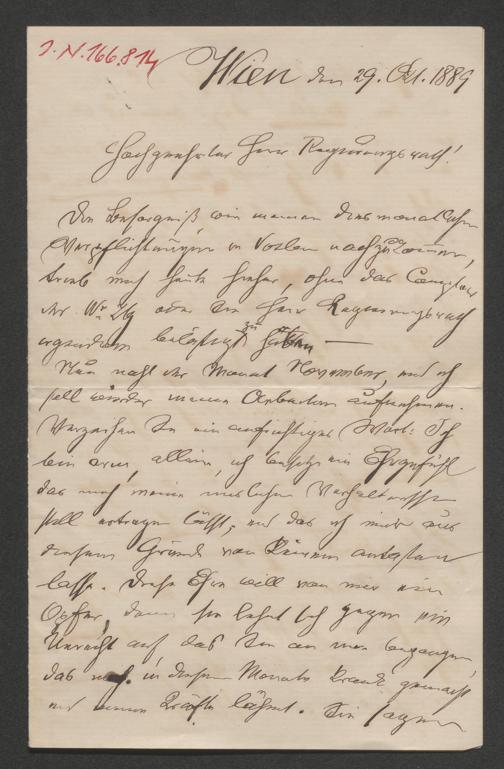 J.N. 166.814
Wien den 29. Okt. 1889
Hochgeehrter Herr Regierungsrath!
Die Besorgniß, wie meinen diesmonatlichen
Verpflichtungen in Voslau nachzukommen,
trieb mich heute hieher, ohne das
oder Sie Herr Regierungsrath
irgendwie belästigt zu haben —
Nun naht der Monat November, und ich
soll wieder meine Arbeiten aufnehmen.
Verzeihen Sie ein aufrichtiges Wort: Ich
bin arm, allein, ich besitze ein Ehrgefühl
das mich meine mislichen Verhältnisse
still ertragen läßt, und das ich nur aus
diesem Grunde von Keinem antasten
lasse. Diese Ehre will von mir ein
Opfer, denn sie lehnt sich gegen ein
Unrecht auf das Sie an mir begangen,
das mich in diesem Monate krank gemacht
und meine Kräfte lähmt. Sie sagen